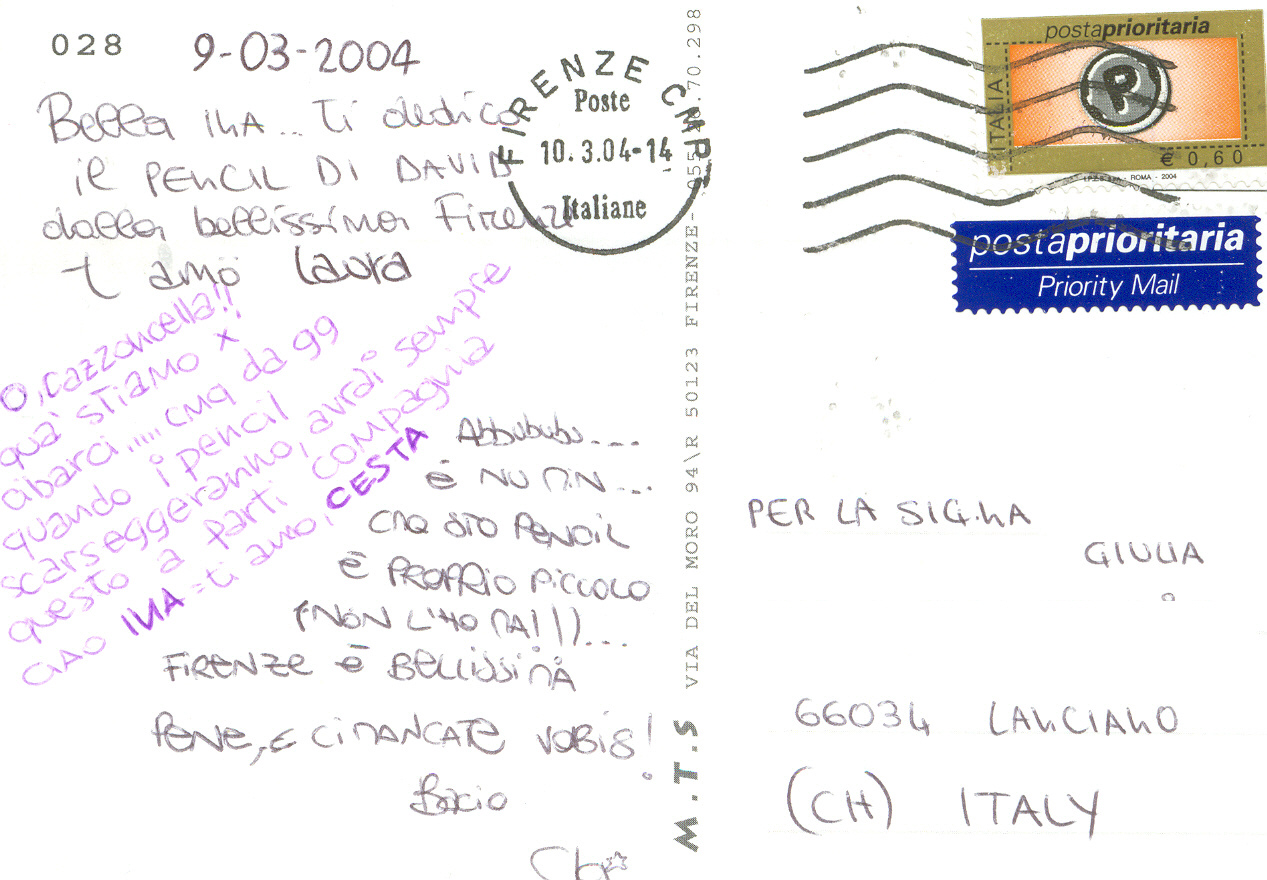 028
9-03-2004
Bella INA... Ti dedico
il PENCIL DI DAVID
dalla bellissima Firenze
t amo Laura
O, cazzoncella!!
qua' stiamo x
cibarci..... cmq da 99
quando i pencil
scarseggeranno, avrai sempre
questo a parti compagnia
CIAO INA = ti amo, CESTA
Abbububu....
È NU NIN...
CMQ STO PENCIL
È PROPRIO PICCOLO
(NON L'HO MAI!!)....
FIRENZE È BELLISSIMA
PENE, E CI MANCATE VOBIS!
Bacio
FIRENZE CMP
Poste
10.3.04-14
Italiane
M.T.S VIA DEL MORO 94\R 50123 FIRENZE-055 .70.298
postaprioritaria
ITALIA
P
€ 0,60
I.P.Z.S. S.p.A. - ROMA - 2004
postaprioritaria
Priority Mail
PER LA SIG.NA
GIULIA
66034 LANCIANO
(CH) ITALY